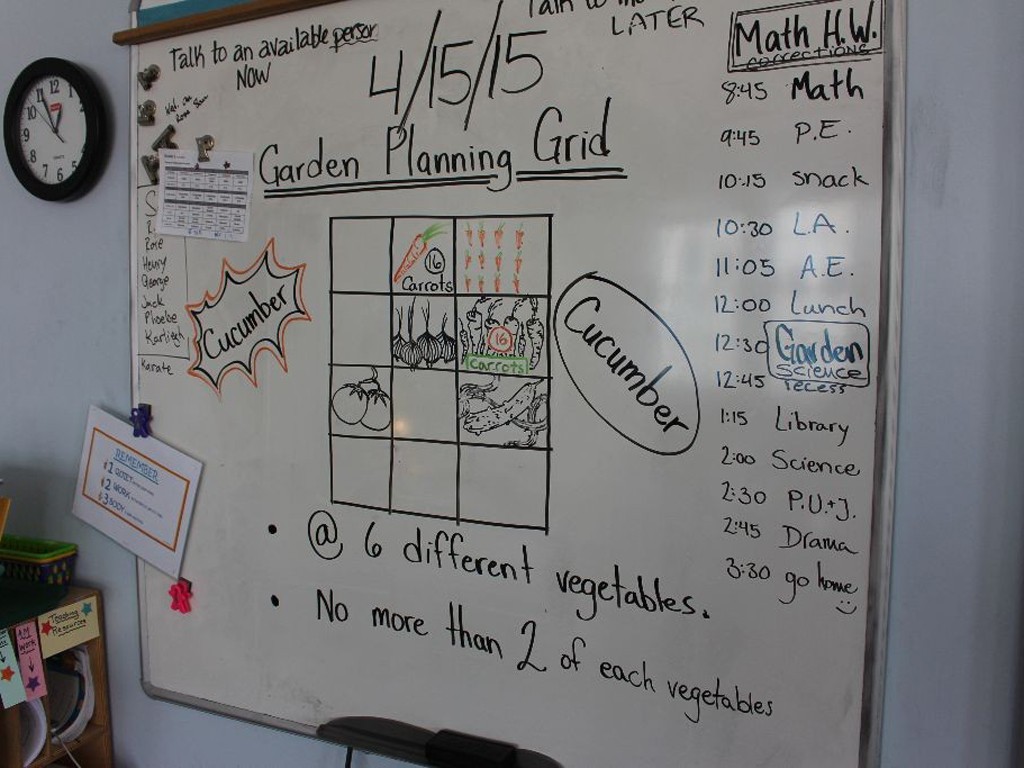 Talk to an available person
NOW
Talk to
LATER
4/15/15
Garden Planning Grid
16
Carrots
16
Carrots
Cucumber
Cucumber
Rose
Henry
George
Jack
Phoebe
Karleigh
Karate
REMEMBER
1 QUIET
2 WORK
3 BODY
• @ 6 different vegetables.
• No more than 2 of each vegetables
Math H.W.
corrections
8:45 Math
9:45 P.E.
10:15 snack
10:30 L.A.
11:05 A.E.
12:00 Lunch
12:30 Garden
Science
12:45 recess
1:15 Library
2:00 Science
2:30 P.U.+J.
2:45 Drama
3:30 go home
Teaching
Resources
AM
WORK
12
1
2
3
4
5
6
7
8
9
10
11